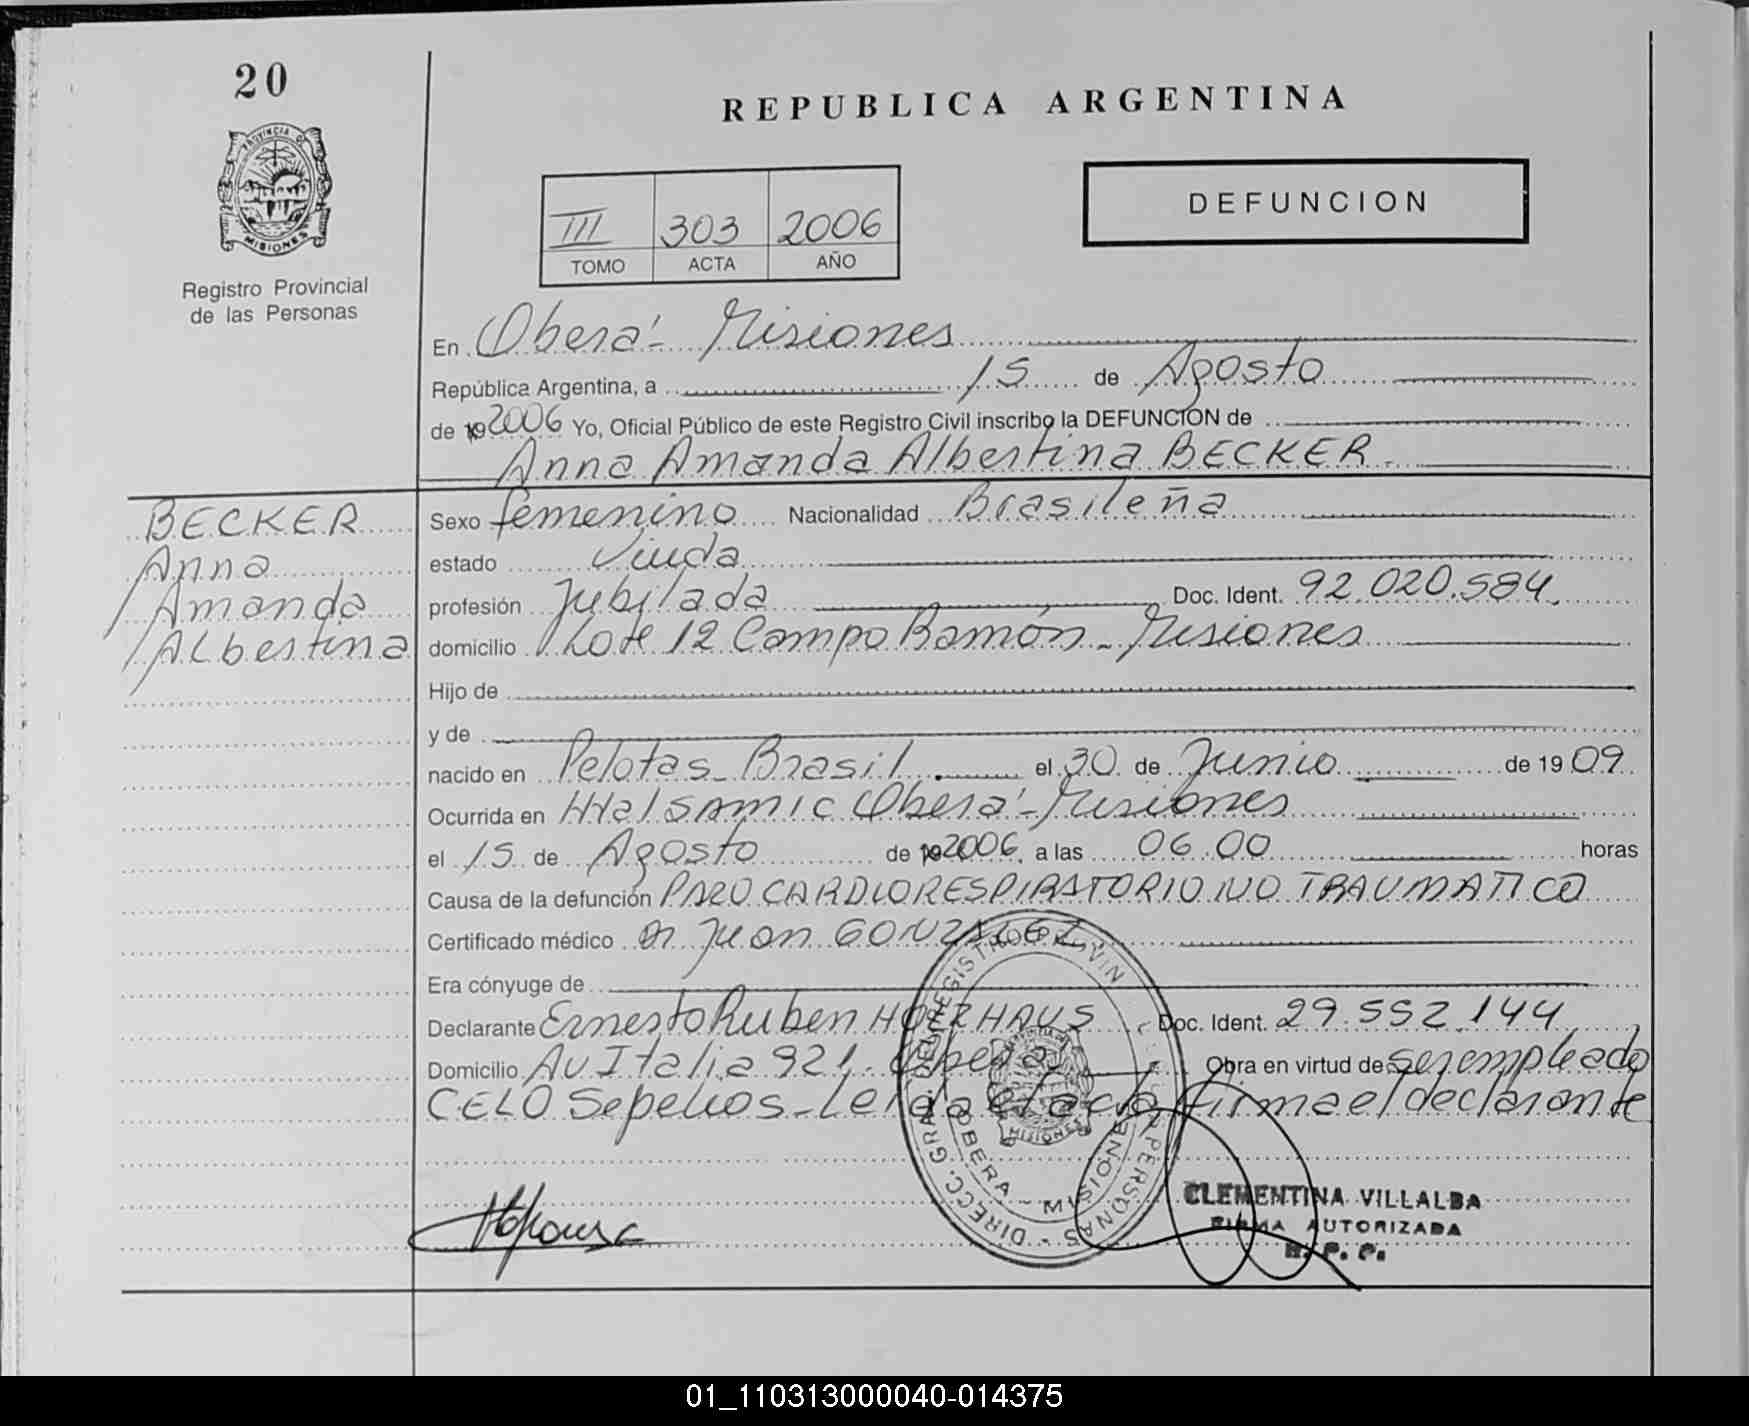 20
REPUBLICA ARGENTINA
PROVINCIA DE
MISIONES
Registro Provincial
de las Personas
III 303 2006
TOMO ACTA AÑO
DEFUNCION
En Oberá - Misiones
República Argentina, a 15 de Agosto
de 19 2006 Yo, Oficial Público de este Registro Civil inscribo la DEFUNCION de
Anna Amanda Albertina BECKER
BECKER
Anna
Amanda
Albertina
Sexo femenino Nacionalidad Brasileña
estado Viuda
profesión Jubilada Doc. Ident. 92.020.584
domicilio Lote 12 Campo Ramón - Misiones
Hijo de
y de
nacido en Pelotas - Brasil el 30 de Junio de 1909
Ocurrida en Htal SAMIC Oberá - Misiones
el 15 de Agosto de 19 2006, a las 06.00 horas
Causa de la defunción PARO CARDIORESPIRATORIO NO TRAUMATICO
Certificado médico Dr Juan GONZALEZ
Era cónyuge de
Declarante Ernesto Ruben Doc. Ident. 29.552.144
Domicilio Av Italia 921 - Oberá Obra en virtud de ser empleado
CELO Sepelios - Leida el acta firma el declarante
DIRECC. GRAL. DEL REGISTRO PROVIN PERSONAS
OBERA - MISIONES
MISIONES
CLEMENTINA VILLALBA
FIRMA AUTORIZADA
R. P. P.
01_110313000040-014375